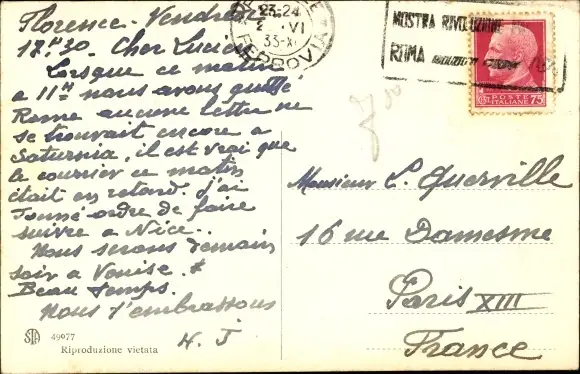 Florence. Vendredi
12H30. Cher Lucien
Lorsque ce matin
a 11H nous avons quitté
Rome aucune lettre ne
se trouvait encore a
Saturnia, il est vrai que
le courrier ce matin
était en retard. J'ai
donné ordre de faire
suivre a Nice..
Nous serons demain
soir a Venise.
Beau temps.
Nous t'embrassons
H. J
STA 49077
Riproduzione vietata
23-24
VI
33-XI
FERROVIA
MOSTRA RIVOLUZIONE
ROMA
POSTE
ITALIANE
CENT. 75
Monsieur L. Querville
16 rue Damesme
Paris XIII
France